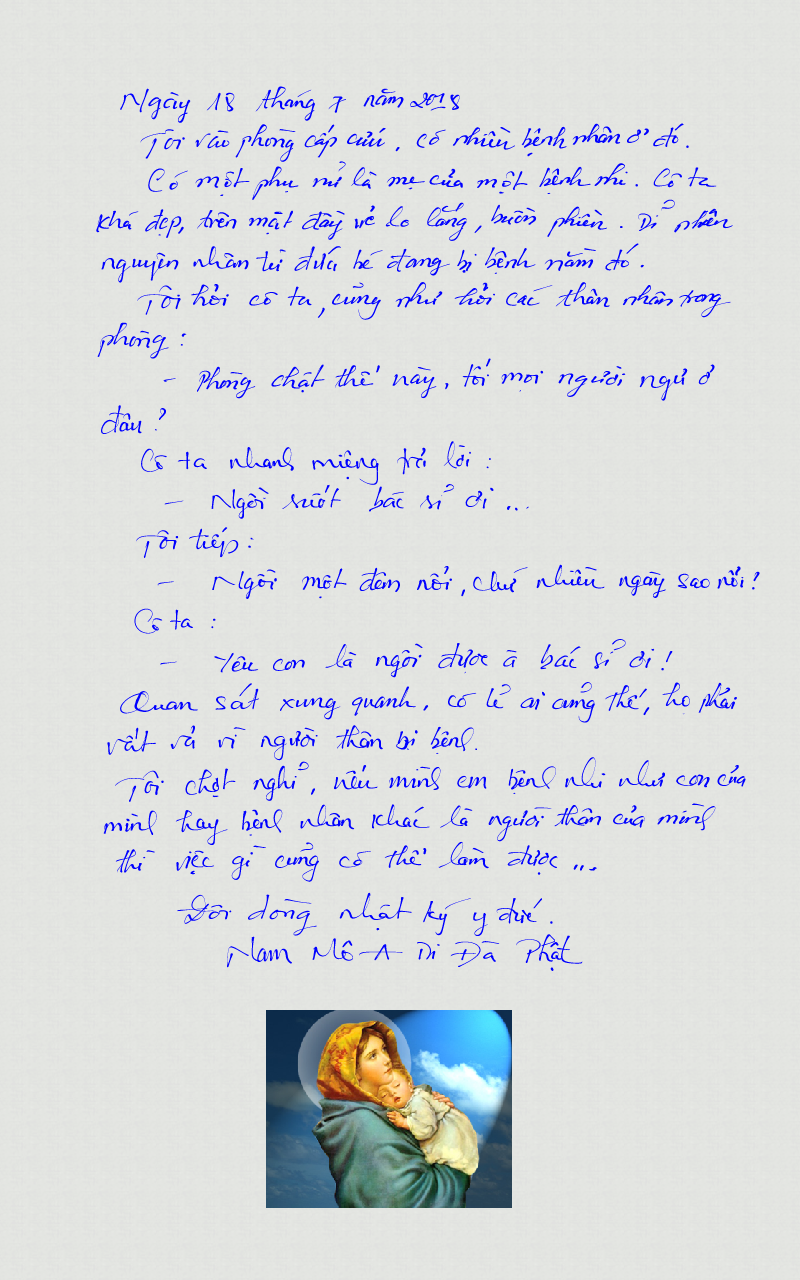 Ngày 18 tháng 7 năm 2018
Tôi vào phòng cấp cứu, có nhiều bệnh nhân ở đó.
Có một phụ nử là mẹ của một bệnh nhi. Cô ta
khá đẹp, trên mặt đầy vẻ lo lắng, buồn phiền. Dỉ nhiên
nguyên nhân từ đứa bé đang bị bệnh nằm đó.
Tôi hỏi cô ta, củng như hỏi các thân nhân trong
phòng :
- Phòng chật thế này, tối mọi người ngủ ở
đâu ?
Cô ta nhanh miệng trả lời :
- Ngồi suốt bác sỉ ơi ...
Tôi tiếp :
- Ngồi một đêm nổi, chứ nhiều ngày sao nổi !
Cô ta :
- Yêu con là ngồi được à bác sỉ ơi !
Quan sát xung quanh, có lẻ ai củng thế, họ phải
vất vả vì người thân bị bệnh.
Tôi chợt nghỉ, nếu mình em bệnh nhi như con của
mình hay bệnh nhân khác là người thân của mình
thì việc gì củng có thể làm được ...
Đôi dòng nhật ký y đức.
Nam Mô A Di Đà Phật